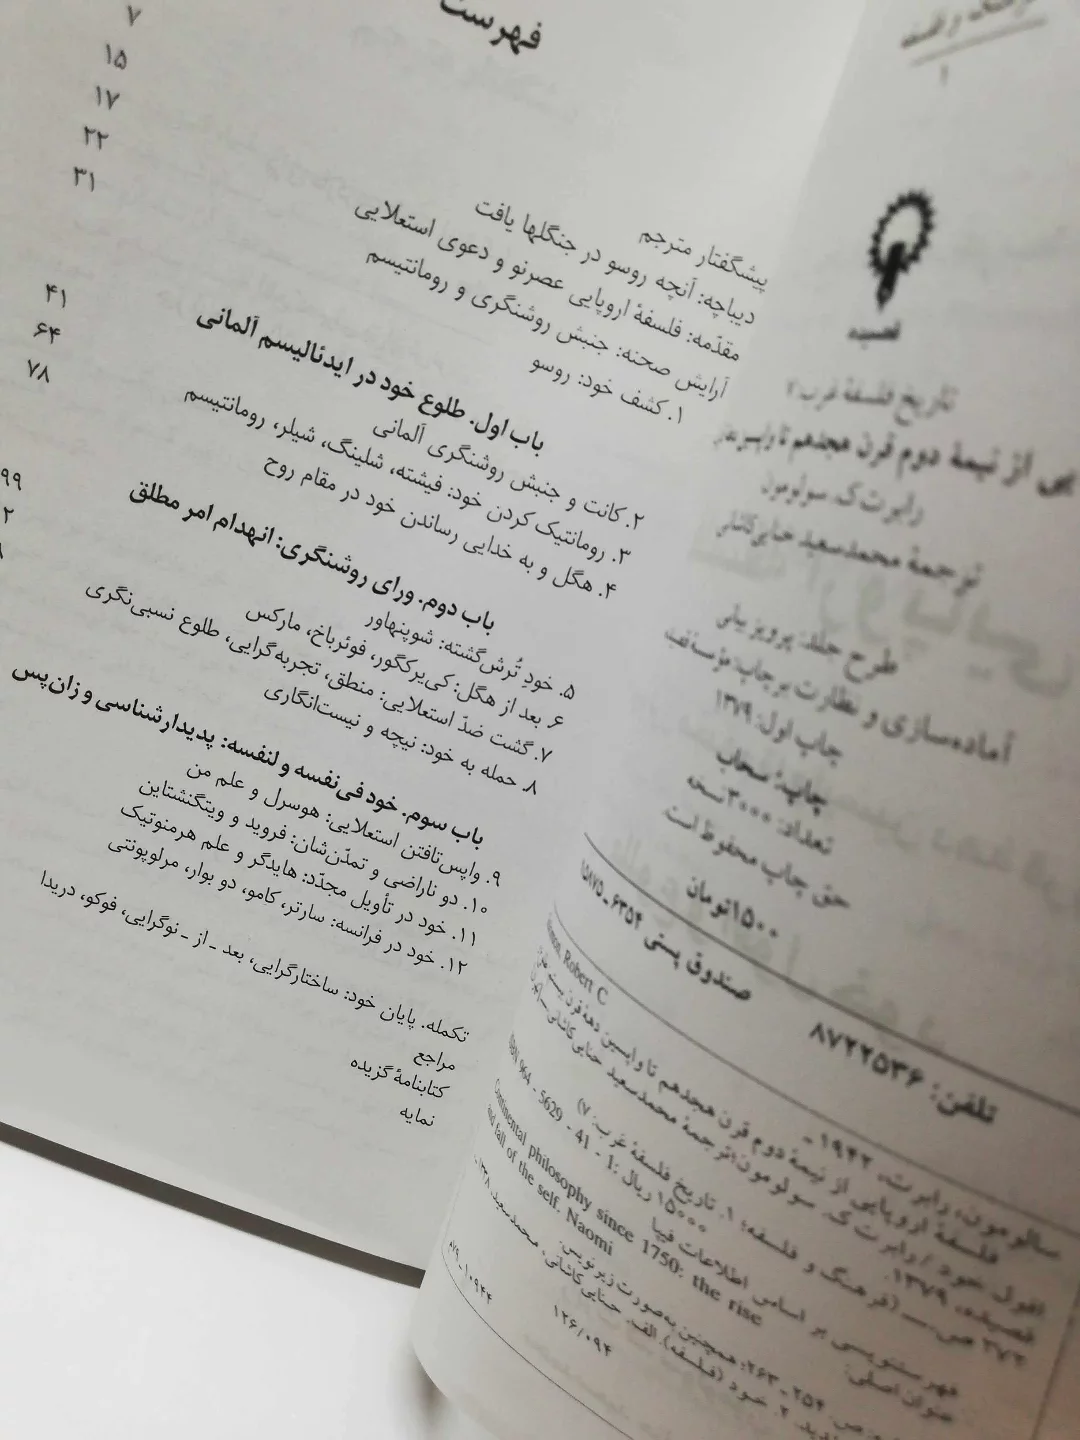 ۱
قصیده
تاریخ فلسفهٔ غرب: ۷
از نیمهٔ دوم قرن هجدهم تا واپسین
رابرت ک. سولومون
ترجمهٔ محمدسعید حنایی‌کاشانی
طرح جلد: پرویز بیانی
آماده‌سازی و نظارت بر چاپ: مؤسسهٔ
چاپ اول: ۱۳۷۹
چاپ: سحاب
تعداد: ۳۰۰۰ نسخه
حق چاپ محفوظ است.
۱۵۰۰ تومان
صندوق پستی ۶۳۵۴ ـ ۱۵۸۷۵
تلفن: ۸۷۲۲۵۳۶
Robert C
سالومون، رابرت، ۱۹۴۲ ـ
فلسفهٔ اروپایی از نیمهٔ دوم قرن هجدهم تا واپسین دههٔ قرن بیستم
افول خود / رابرت ک. سولومون؛ ترجمهٔ محمدسعید حنایی‌کاشانی.
قصیده، ۱۳۷۹.
۲۷۳ ص. ـــ (فرهنگ و فلسفه؛ ۱. تاریخ فلسفهٔ غرب؛ ۷)
۱۵۰۰۰ ریال: ISBN 964 - 5629 - 41 - 1
فهرستنویسی بر اساس اطلاعات فیپا
عنوان اصلی: Continental philosophy since 1750: the rise
and fall of the self. Naomi
ص. ۲۵۴ ـ ۲۶۳؛ همچنین به‌صورت زیرنویس.
۲. خود (فلسفه). الف. حنایی‌کاشانی، محمدسعید، ۱۳۳۸ ـ
۱۲۶/۰۹۴
۱۰۹۴۴ ـ ۷۹م
فهرست
پیشگفتار مترجم ۷
دیباچه: آنچه روسو در جنگلها یافت ۱۵
مقدّمه: فلسفهٔ اروپایی عصرنو و دعوی استعلایی ۱۷
آرایش صحنه: جنبش روشنگری و رومانتیسم ۲۲
۱. کشف خود: روسو ۳۱
باب اول. طلوع خود در ایدئالیسم آلمانی
۲. کانت و جنبش روشنگری آلمانی ۴۱
۳. رومانتیک کردن خود: فیشته، شلینگ، شیلر، رومانتیسم ۶۴
۴. هگل و به خدایی رساندن خود در مقام روح ۷۸
باب دوم. ورای روشنگری: انهدام امر مطلق
۵. خودِ تُرش‌گشته: شوپنهاور ۹۹
۶. بعد از هگل: کی‌یرکگور، فوئرباخ، مارکس
۷. گشت ضدّ استعلایی: منطق، تجربه‌گرایی، طلوع نسبی‌نگری
۸. حمله به خود: نیچه و نیست‌انگاری
باب سوم. خود فی‌نفسه و لنفسه: پدیدارشناسی و زان‌پس
۹. واپس‌تافتن استعلایی: هوسرل و علم من
۱۰. دو ناراضی و تمدّن‌شان: فروید و ویتگنشتاین
۱۱. خود در تأویل مجدّد: هایدگر و علم هرمنوتیک
۱۲. خود در فرانسه: سارتر، کامو، دو بوار، مرلوپونتی
تکمله. پایان خود: ساختارگرایی، بعد ـ از ـ نوگرایی، فوکو، دریدا
مراجع
کتابنامهٔ گزیده
نمایه